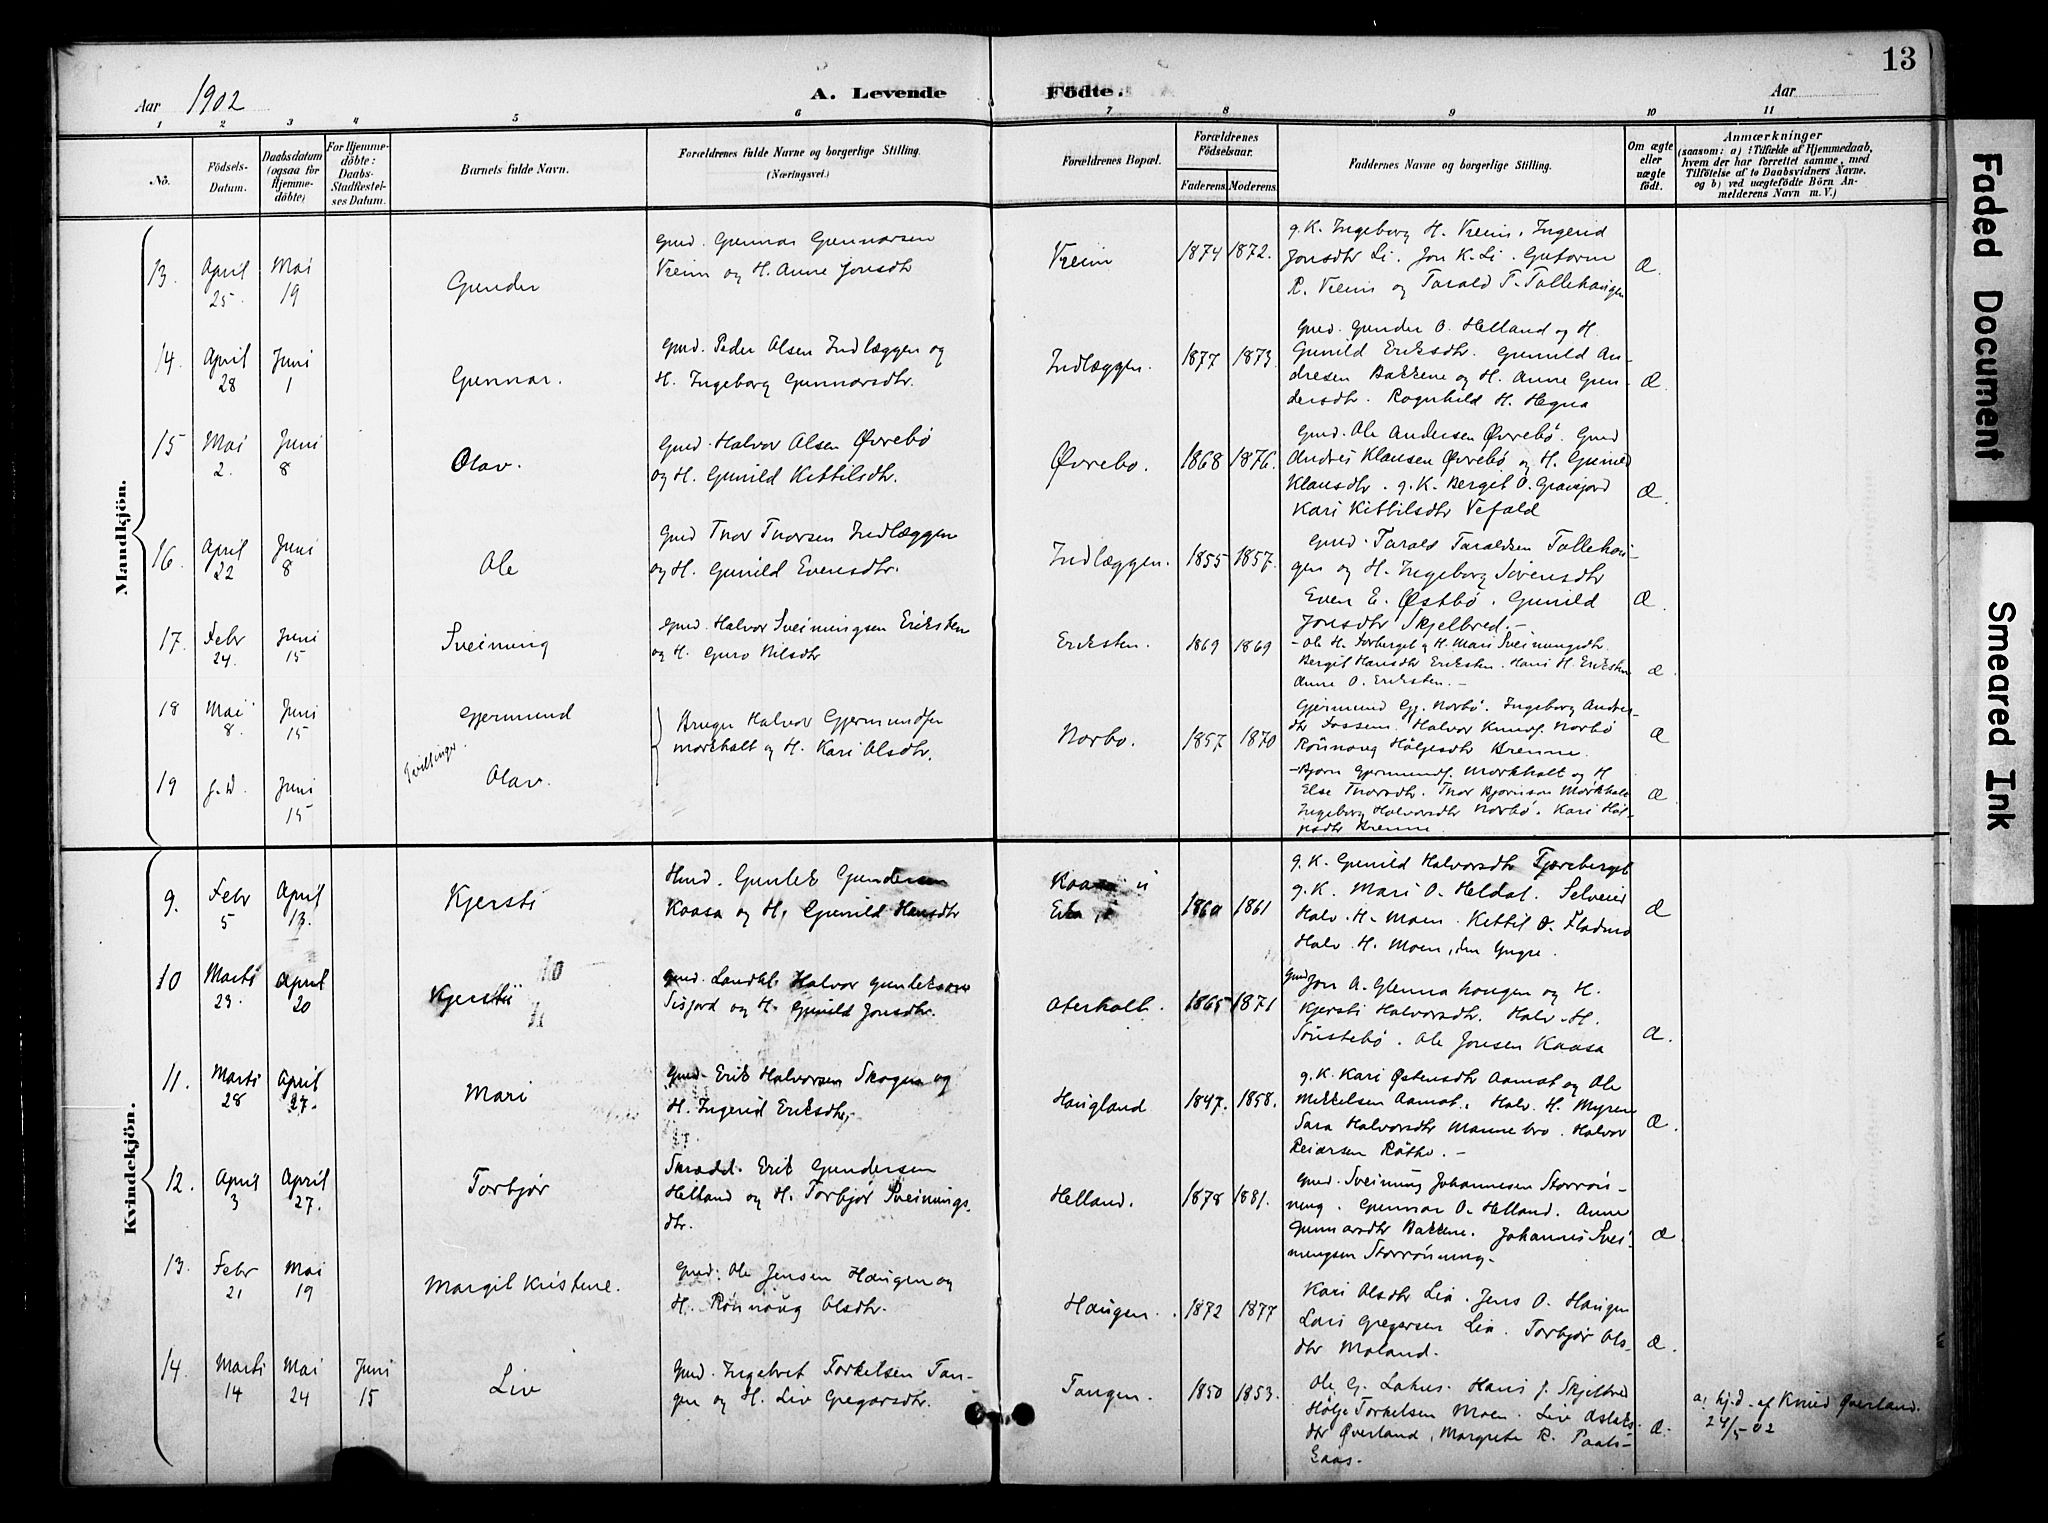 13
Aar 1902
A. Levende Födte.
Aar
1 2 3 4 5 6 7 8 9 10 11
No.
Födsels-Datum.
Daabsdatum (ogsaa for Hjemme-döbte)
For Hjemme-döbte: Daabs-Stadfæstel-ses Datum.
Barnets fulde Navn.
Forældrenes fulde Navne og borgerlige Stilling. (Næringsvei.)
Forældrenes Bopæl.
Forældrenes Födselsaar.
Faderens. Moderens.
Faddernes Navne og borgerlige Stilling.
Om ægte eller uægte födt.
Anmærkninger
(saasom: a) i Tilfælde af Hjemmedaab, hvem der har forrettet samme, med Tilföielse af to Daabsvidners Navne, og b) ved uægtefödte Börn An-melderens Navn m. V.)
Mandkjön.
13. April 25. Mai 19 Gunder
Gmd. Gunnar Gunnarsen
Vreim og H. Anne Jonsdtr
Vreim 1874 1872.
g. K. Ingeborg H. Vreim. Ingerid
Jonsdtr Li. Jon K. Li. Guttorm
R. Vreim og Tarald T. Tollehaugen
Æ.
14. April 28 Juni 1 Gunnar.
Gmd. Peder Olsen Indlæggen og
H. Ingeborg Gunnarsdtr.
Indlæggen. 1877 1873.
Gmd. Gunder O. Helland og H.
Gunild Eriksdtr. Gunild An-
dresen Bakkene og H. Anne Gun-
dersdtr. Ragnhild H. Hegna
Æ.
15 Mai 2. Juni 8 Olav.
Gmd. Halvor Olsen Øvrebö
og H. Gunild Kittilsdtr.
Øvrebo. 1868 1876.
Gmd. Ole Andersen Øvrebö. Gmd
Andres Klausen Øvrebö og H. Gunild
Klausdtr. g. K. Bergit O. Gravsjord
Kari Kittilsdtr Vefald
Æ.
16. April 22 Juni 8 Ole
Gmd Thor Thorsen Indlæggen
og H. Gunild Evensdtr.
Indlæggen. 1855 1857.
Gmd. Tarald Taraldsen Tollehau-
gen og H. Ingeborg Sörensdtr
Even E. Østbö. Gunild
Jonsdtr Skjelbred.-
Æ.
17. Febr 24. Juni 15 Sveinung
Gmd. Halvor Sveinungsen Eriksten
og H. Guro Nilsdtr
Eriksten. 1869 1869
- Ole H. Forberget og H. Mari Sveinungsdtr.
Bergit Hansdtr Eriksten. Hans H. Eriksten
Anne O. Eriksten.-
Æ.
18 Mai 8. Juni 15 Gjermund
Tvillinger.
Bruger Halvor Gjermundsen
Morkhalt og H. Kari Olsdtr.
Norbo. 1857 1870
Gjermund Gj. Norbö. Ingeborg Andres-
dtr Fossem. Halvor Knuds. Norbö
Rönnoug Hölgesdtr Brenne.
Æ
19 s. D. Juni 15 Olav.
- Bjorn Gjermunds. Morkhalt og H
Else Thorsdtr. Thor Bjornson Morkhalt
Ingeborg Halvorsdtr Norbö. Kari Höl-
gesdtr Brenne.
Æ.
Kvindekjön.
9. Febr 5 April 13. Kjersti
Hmd. Gunlek Gundersen
Kaasa og H. Gunild Hansdtr
Kaasa 1860 1861
g. K. Gunild Halvorsdtr
g. K. Mari O. Heldal. Selveier
Halv. H. Moen. Kittil O. Fladmo
Halv. H. Moen, den Yngre.
Æ
10 Marts 23. April 20 Kjersti
Gmd. Landhl. Halvor Gunleksen
Sisjord og H. Gunild Jonsdtr.
Oterholt. 1865 1871
Gmd Jon A. Glenna haugen og H.
Kjersti Halvorsdtr. Halv. H.
Sönstebö. Ole Jonsen Kaasa
Æ.
11. Marts 28 April 27. Mari
Gmd. Erik Halvorsen Skogen og
H. Ingerid Eriksdtr,
Haugland 1847. 1858.
g. K. Kari Østensdtr Aamot og Ole
Mikkelsen Aamot. Halv. H. Myren
Sara Halvorsdtr Mannebro. Halvor
Reiersen Röthe.-
Æ.
12. April 3 April 27. Torbjör
Skrædd. Erik Gundersen
Helland og H. Torbjör Sveinungs-
dtr.
Helland. 1878 1881.
Gmd. Sveinung Johannesen Storrön-
ning. Gunnar O. Helland. Anne
Gunnarsdtr Bakkene. Johannes Svei-
nungsen Storrönning.
Æ.
13. Febr 21 Mai 19 Margit Kristine.
Gmd. Ole Jensen Haugen og
H. Rönnoug Olsdtr.
Haugen. 1872 1877
Kari Olsdtr Lia. Jens O. Haugen
Lars Gregersen Lia. Torbjör Ols-
dtr Moland.
Æ.
14. Marts 14 Mai 24 Juni 15 Liv
Gmd. Ingebret Torkelsen Tan-
gen og H. Liv Gregarsdtr.
Tangen. 1850 1853.
Ole G. Lahus. Hans J. Skjelbred
Hölje Torkelsen Moen. Liv Aslaks-
dtr Øverland, Margrete R. Paals-
Gaas.
Æ.
a, hj.d. af Knud Øverland.
24/5 02
Faded Document
Smeared Ink